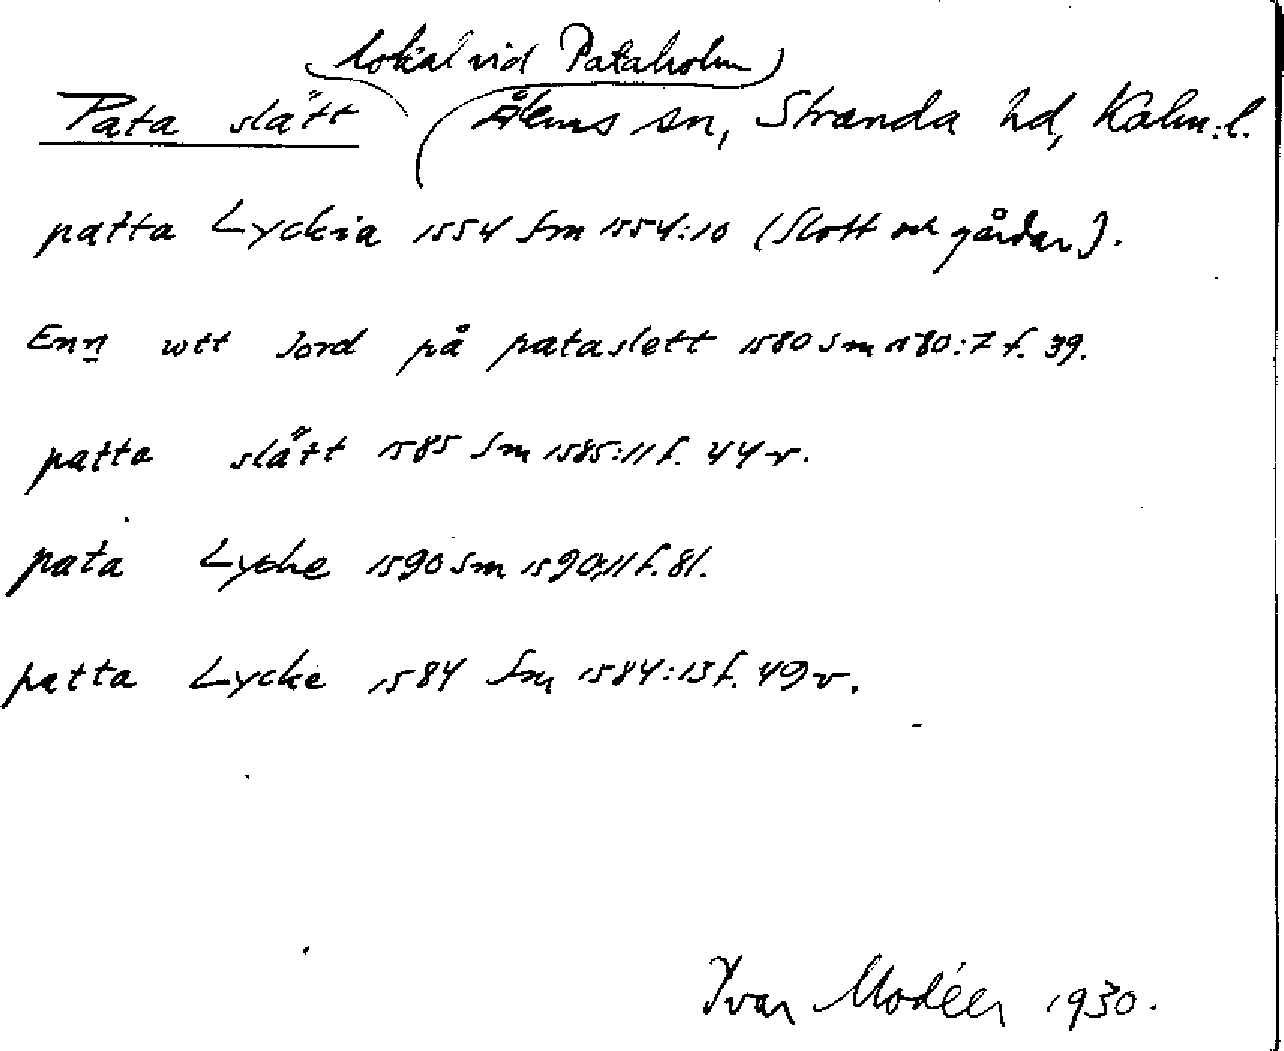 lokal vid Pataholm
Pata slätt Ålems sn, Stranda hd, Kalm. l.
patta Lyckia 1554 Sm 1554:10 (Slott och gårdar).
Enn wtt Jord på pataslett 1580 Sm 1580:7 f. 39.
patta slätt 1585 Sm 1585:11 f. 44 v.
pata Lycke 1590 Sm 1590:11 f. 81.
patta Lycke 1584 Sm 1584:13 f. 49 v.
Ivar Modéer 1930.